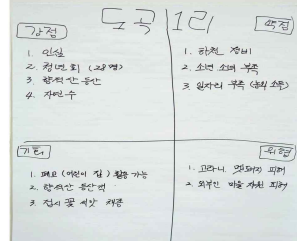 도곡1리
강점
1. 인심
2. 청년회 (28명)
3. 향적산 등산
4. 자연수
약점
1. 하천 정비
2. 소년 소녀 부족
3. 일자리 부족 (농외 소득)
기회
1. 폐교 (어린이 집) 활용 가능
2. 향적산 등산객
3. 접시꽃 씨앗 채종
위협
1. 고라니, 멧돼지 피해
2. 외부인 마을 자원 피해